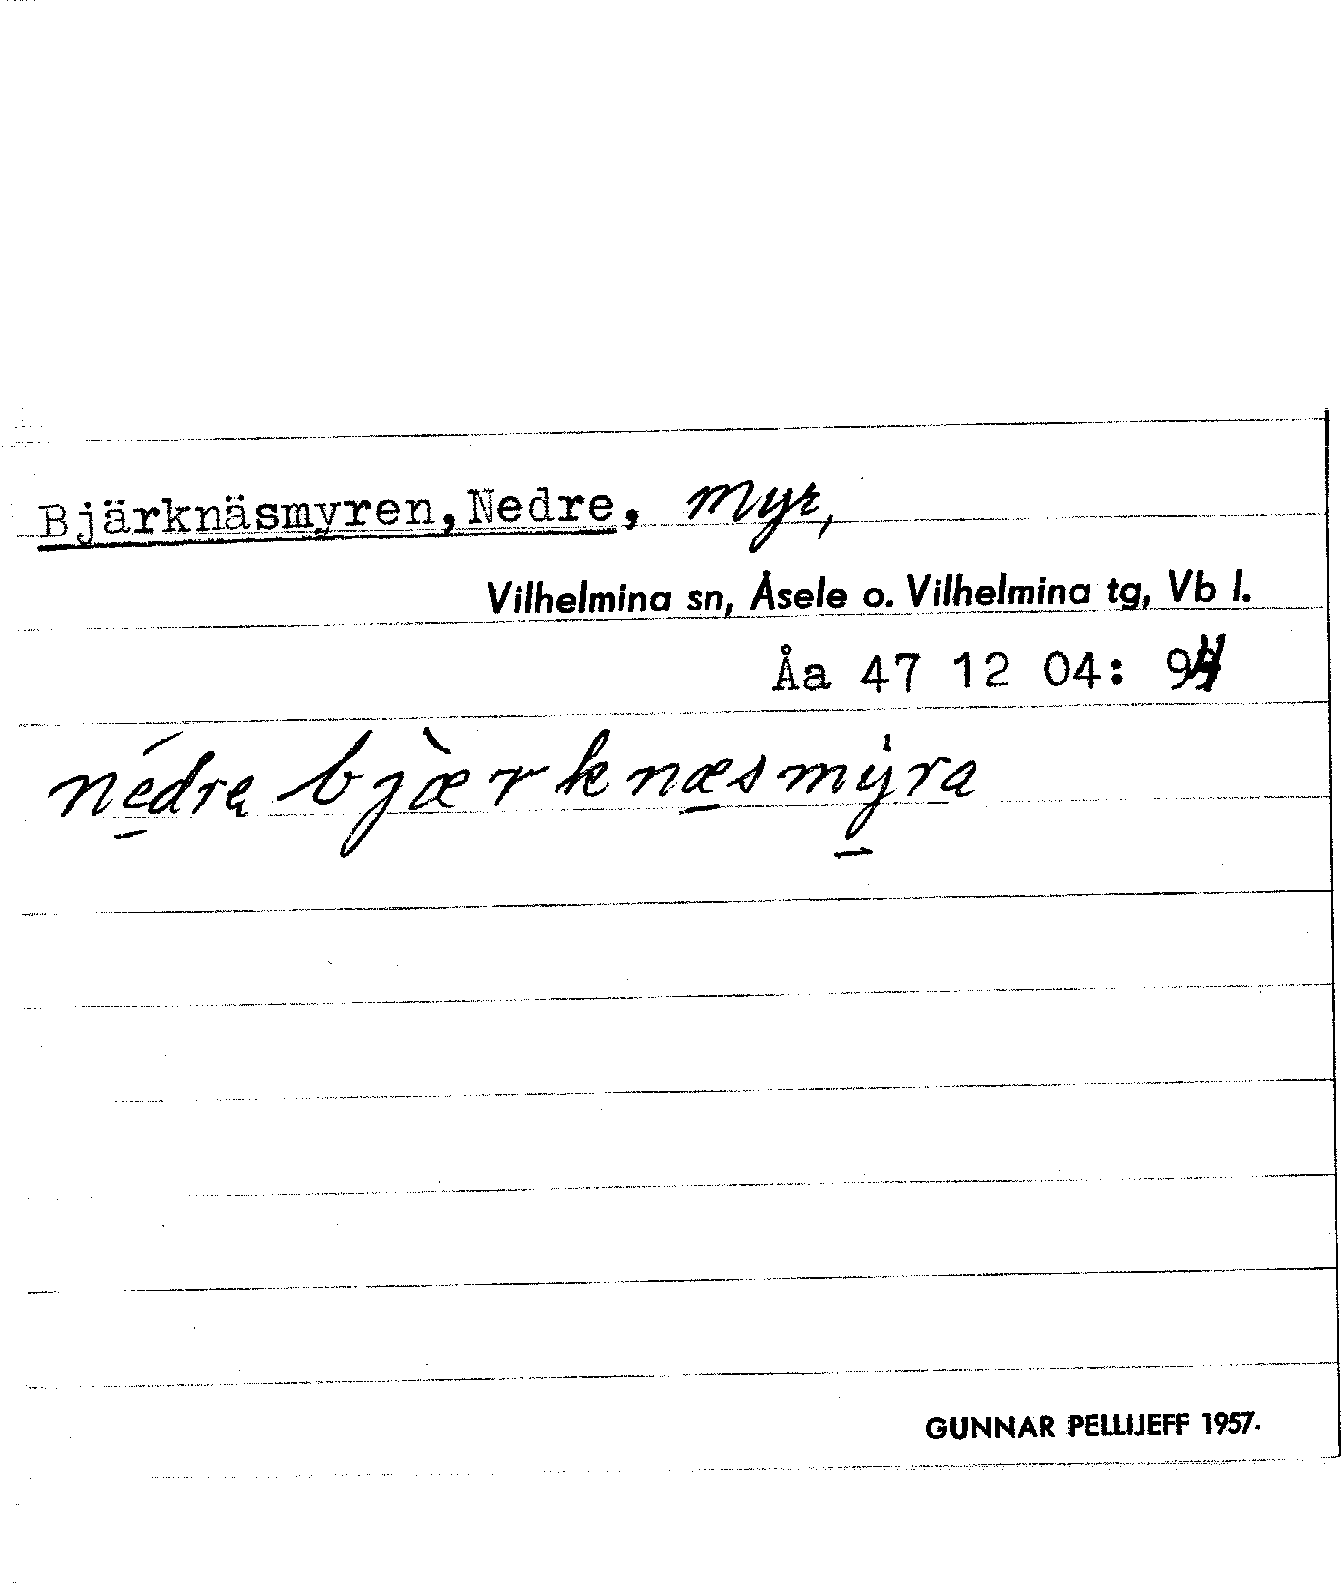 Bjärknäsmyren, Nedre, myr,
Vilhelmina sn, Åsele o. Vilhelmina tg, Vb l.
Åa 47 12 04: 94
nédrę bjæ̀rknæsmýra
GUNNAR PELLIJEFF 1957.